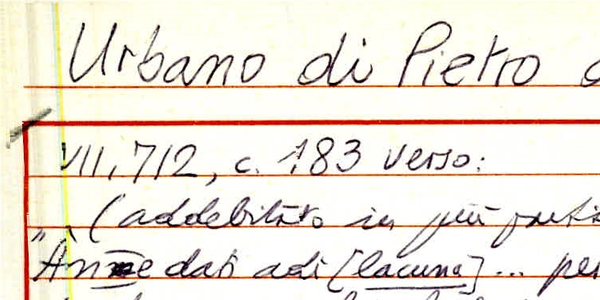 Urbano di Pietro
VII, 712, c. 183 verso:
" (addebitato in più partite
Ànne dati adì [lacuna] ... pe